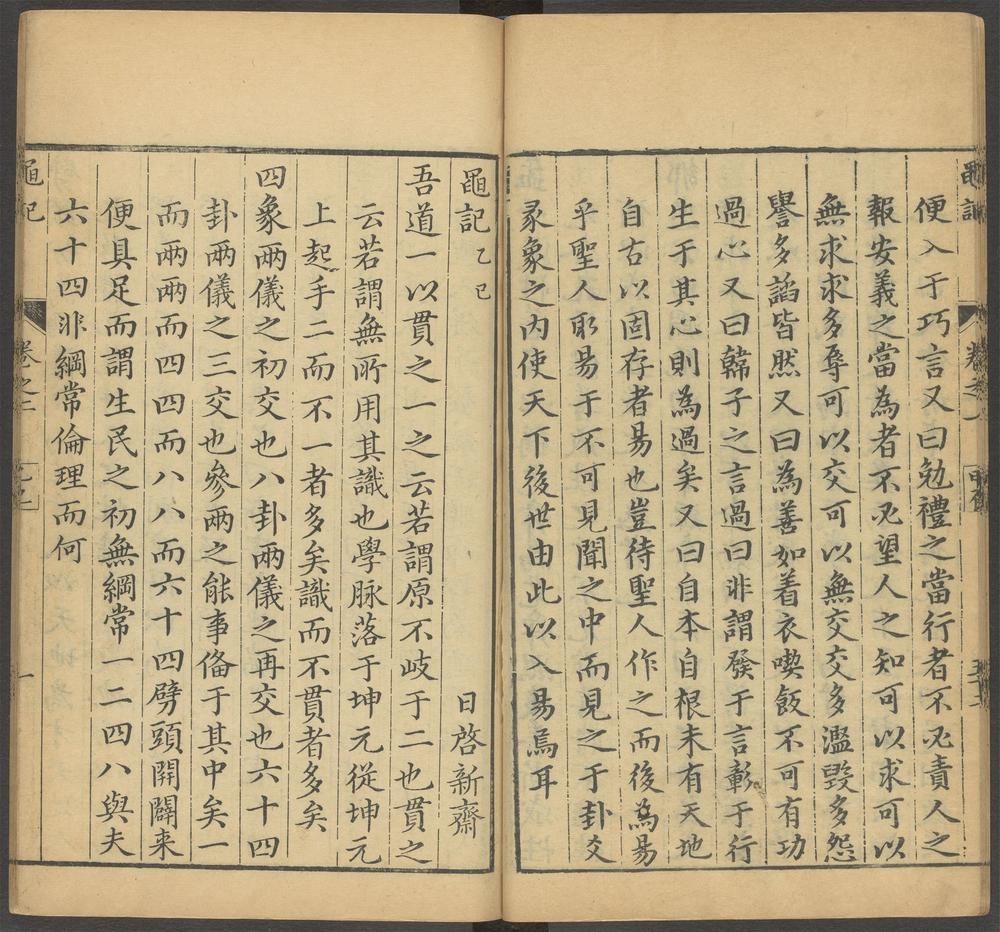 黽記
卷之一
便入于巧言又曰勉禮之當行者不必責人之
報安義之當為者不必望人之知可以求可以
無求求多辱可以交可以無交交多濫毀多怨
譽多謟皆然又曰為善如着衣喫飯不可有功
過心又曰韓子之言過曰非謂發于言彰于行
生于其心則為過矣又曰自本自根未有天地
自古以固存者易也豈待聖人作之而後為易
乎聖人取易于不可見聞之中而見之于卦爻
彖象之內使天下後世由此以入易焉耳
黽記乙巳 日啓新齋
吾道一以貫之一之云若謂原不岐于二也貫之
云若謂無所用其識也學脉落于坤元從坤元
上起手二而不一者多矣識而不貫者多矣
四象兩儀之初交也八卦兩儀之再交也六十四
卦兩儀之三交也參兩之能事俻于其中矣一
而兩兩而四四而八八而六十四劈頭開闢来
便具足而謂生民之初無綱常一二四八與夫
六十四非綱常倫理而何
黽記
卷之二
一